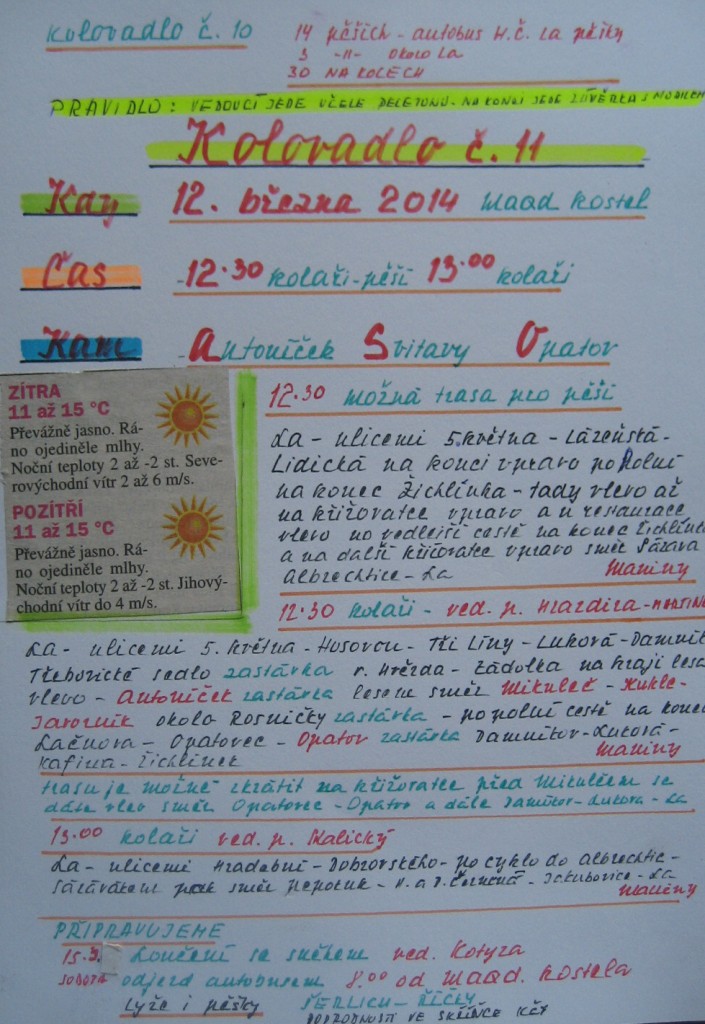 Kolovadlo č. 10
14 pěších - autobus H.Č. La pěšky
3 -11- okolo La
30 NA KOLECH
PRAVIDLO: VEDOUCÍ JEDE V ČELE PELETONU - NA KONCI JEDE ZÁVĚRKA S MOBILEM
Kolovadlo č. 11
Kdy 12. března 2014 Magd kostel
Čas - 12.30 kolaři - pěší 13.00 kolaři
Kam - Antoníček Svitavy Opatov
ZÍTRA
11 až 15 °C
Převážně jasno. Rá-
no ojediněle mlhy.
Noční teploty 2 až -2 st. Seve-
rovýchodní vítr 2 až 6 m/s.
POZÍTŘÍ
11 až 15 °C
Převážně jasno. Rá-
no ojediněle mlhy.
Noční teploty 2 až -2 st. Jihový-
chodní vítr do 4 m/s.
12.30 možná trasa pro pěší
La - ulicemi 5. května - Lázeňská -
Lidická na konci vpravo po Polní
na konec Žichlínka - tady vlevo až
na křižovatce vpravo a u restaurace
vlevo po vedlejší cestě na konec Žichlínk
a na další křižovatce vpravo směr Sázava
Albrechtice - La Maniny
12.30 kolaři - ved. p. Hrazdira - MARTIN
La - ulicemi 5. května - Husovou - Tři Lípy - Luková - Damník
Třebovické sedlo zastávka r. Hvězda - Zádolka na kraji lesa
vlevo - Antoníček zastávka lesem směr Mikuleč - Kukle -
Javorník okolo Rosničky zastávka - po polní cestě na konec
Lačnova - Opatovec - Opatov zastávka Damníkov - Luková -
Kafina - Žichlínek Maniny
trasu je možné zkrátit na křižovatce před Mikulčem se
dáte vlevo směr Opatovec - Opatov a dále Damníkov - Luková - La
13.00 kolaři ved. p. Skalický
La - ulicemi Hradební - Dobrovského - po cyklo do Albrechtic -
Sázávátem pak směr Nepomuk - H. a D. Čermná - Jakubovice - La
Maniny
PŘIPRAVUJEME
15.3. Loučení se sněhem ved. Kotyza
SOBOTA odjezd autobusem 8.00 od Magd. kostela
Lyže i pěšky ŠERLICH - ŘÍČKY
PODROBNOSTI VE SKŘÍŇCE KČT